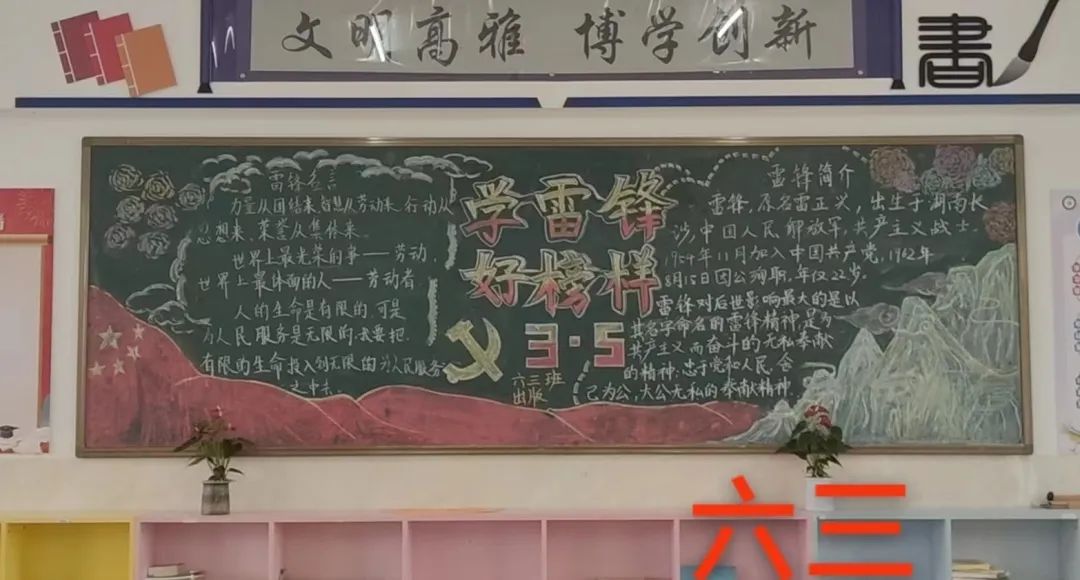 文明高雅 博学创新
書
雷锋名言
力量从团结来,智慧从劳动来,行动从
思想来,荣誉从集体来。
世界上最光荣的事——劳动,
世界上最体面的人——劳动者
人的生命是有限的,可是
为人民服务是无限的,我要把
有限的生命投入到无限的为人民服务
之中去
学雷锋
好榜样
3·5
六三班
出版
雷锋简介
雷锋,原名雷正义,出生于湖南长
沙,中国人民解放军,共产主义战士.
月加入中国共产党,1962年
8月15日因公殉职,年仅22岁.
雷锋对后世影响最大的是以
其名字命名的雷锋精神,是为
共产主义而奋斗的无私奉献
的精神;忠于党和人民,舍
己为公,大公无私的奉献精神.
六三